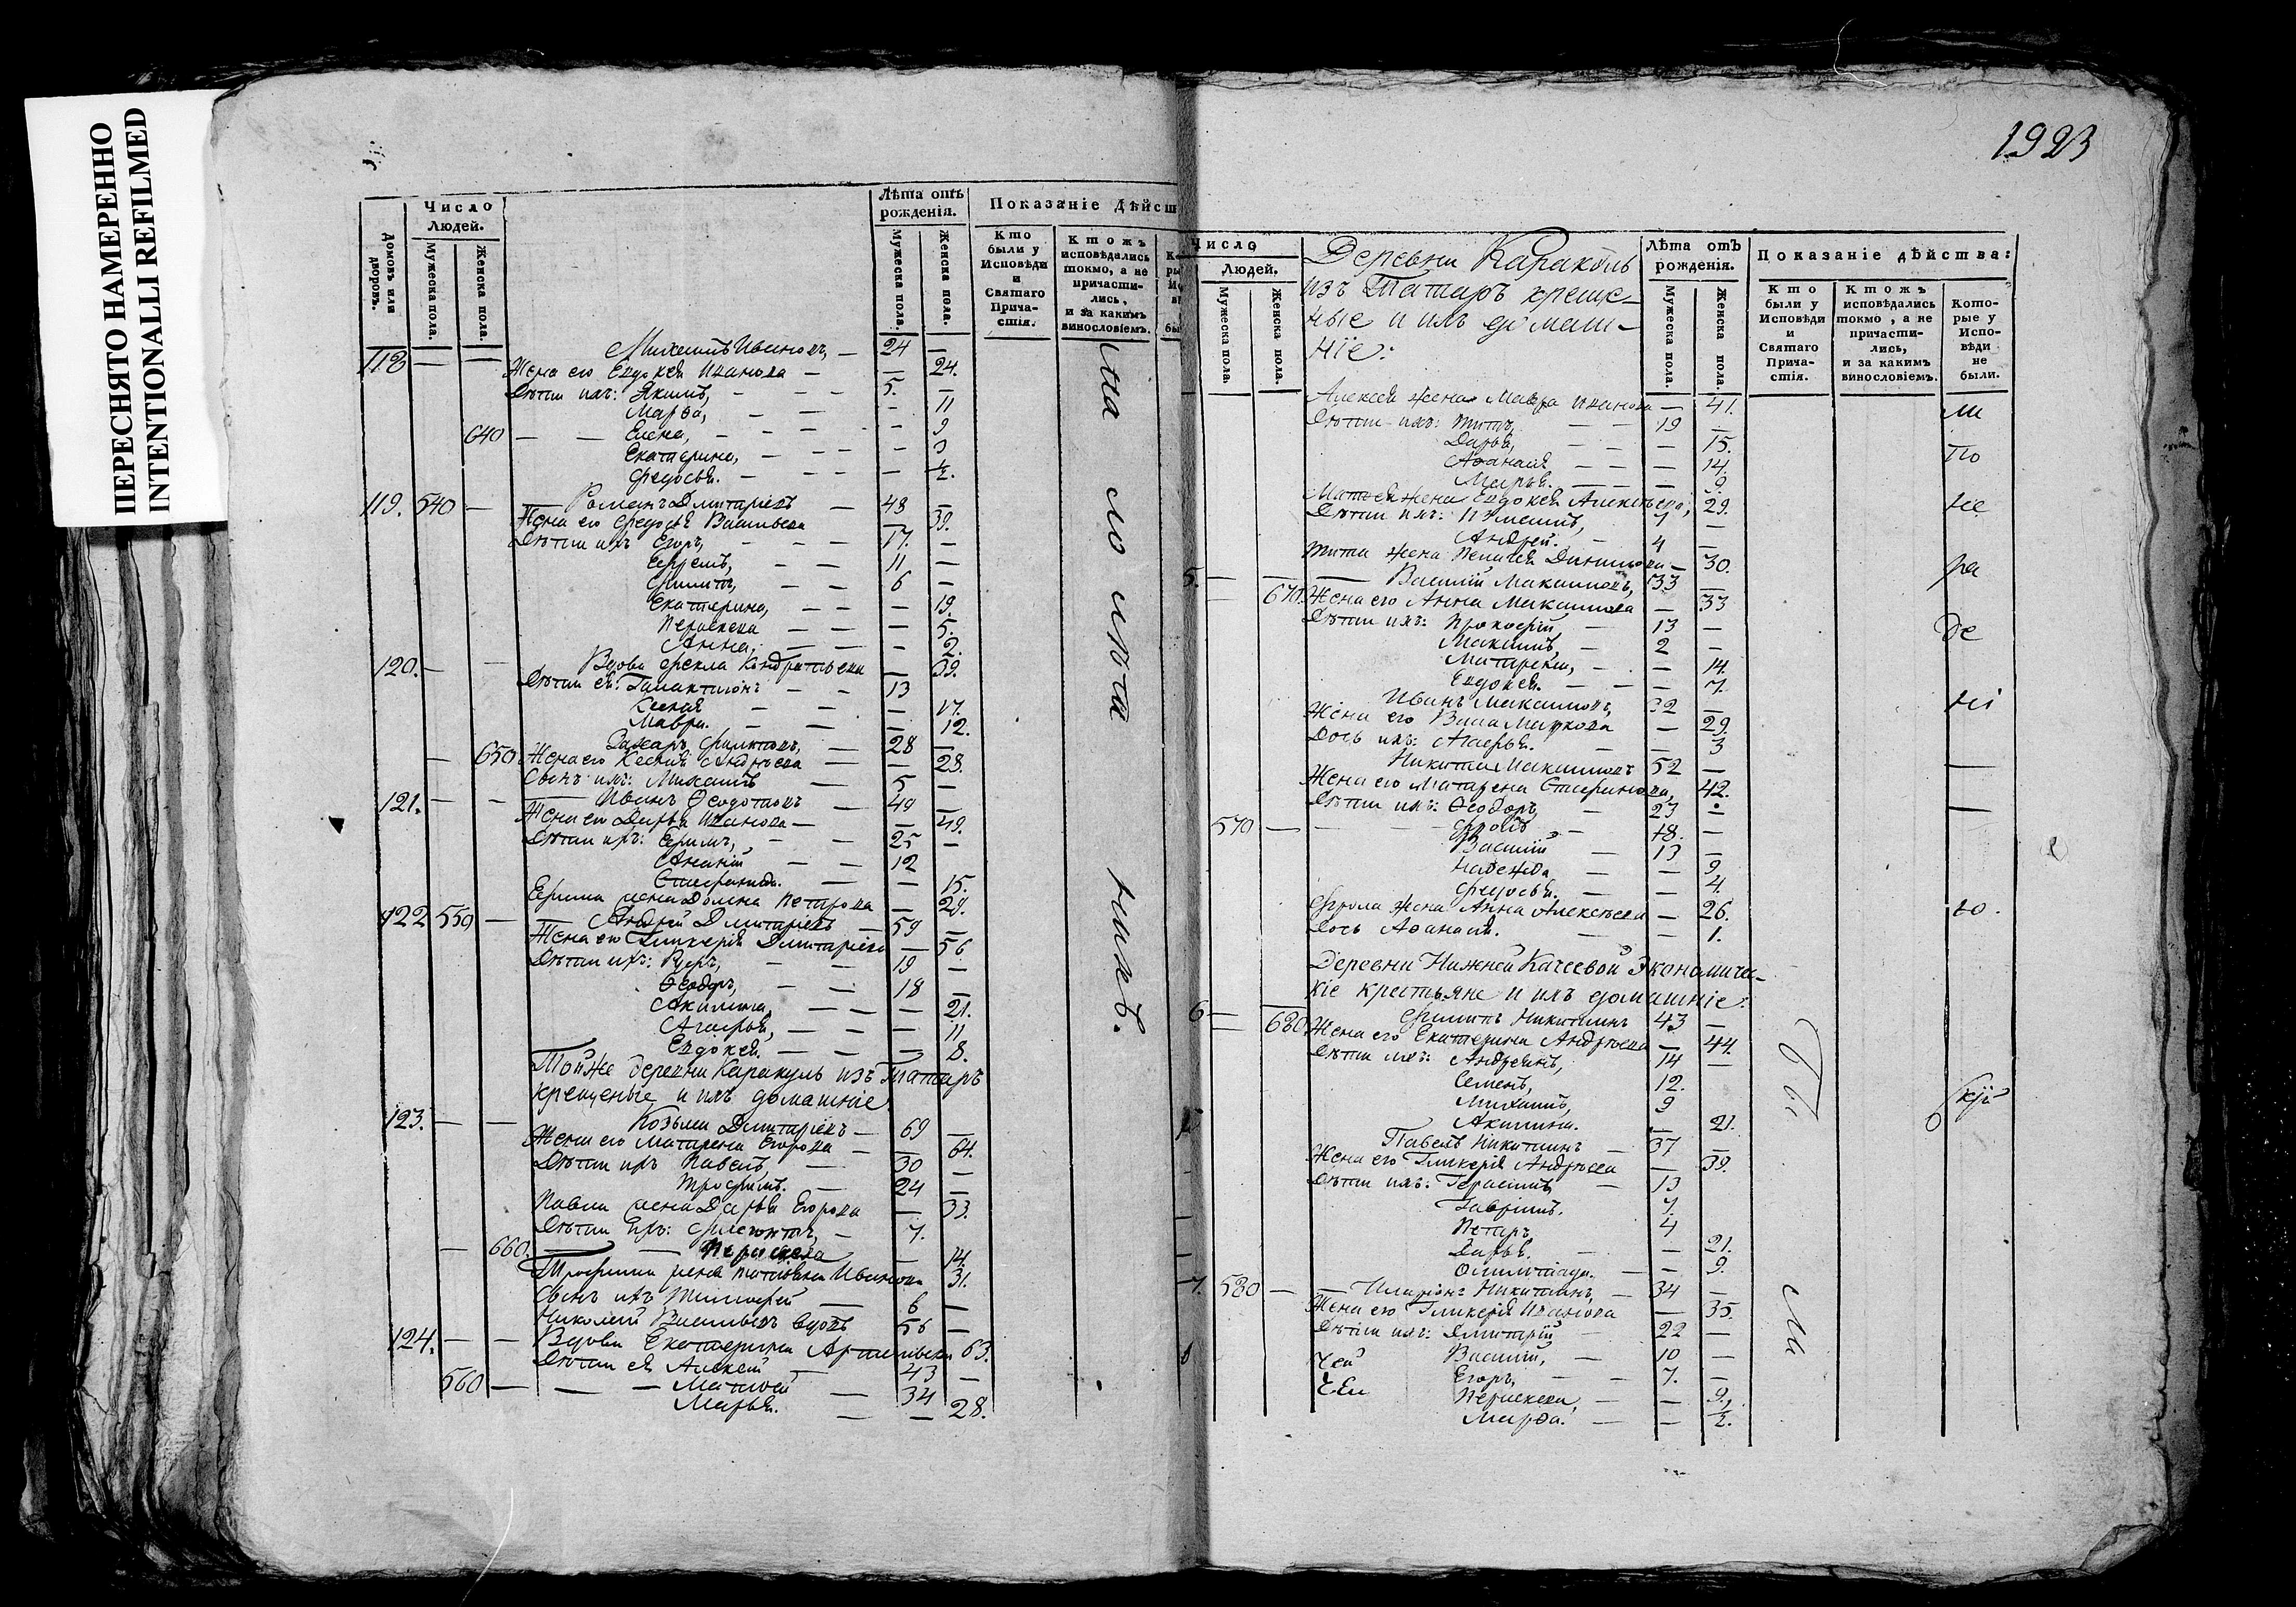 ПЕРЕСНЯТО НАМЕРЕННО
INTENTIONALLI REFILMED
Домовъ или дворовъ.
Число Людей.
Мужеска пола.
Женска пола.
Лѣта отъ рожденія.
Мужеска пола.
Женска пола.
Показаніе Дѣйст
Кто были у Исповѣди и Святаго Прича-стія.
Ктожъ исповѣдались токмо, а не причасти-лись, и за какимъ винословіемъ.
118 — — Михаилъ Ивановъ, — 24 —
Жена его Евдокея Иванова — — 24.
Дѣти ихъ: Якимъ, — 5. —
Марѳа, — — 11
640 — — Елена, — — 9
Екатерина, — — 3
Федосья. — — ½.
119. 540 — Романъ Дмитріевъ — 43 —
Жена его Федосья Васильева — 39.
Дѣти ихъ Егоръ, — 17. —
Ефремъ, — 11 —
Филипъ, — 6 —
Екатерина, — — 19.
Параскева — — 5.
Анна, — — 2.
120. — — Вдова Фекла Кондратьева — 39.
Дѣти ея: Галактіонъ — 13
Ксенія — — 17.
Мавра. — — 12.
Захаръ Филиповъ, — 28 —
— 650 Жена его Ксенія Андреева — — 28.
Сынъ ихъ: Михаилъ — 5 —
121. — — Иванъ Ѳедотовъ — 49 —
Жена его Дарья Иванова — — 49.
Дѣти ихъ: Ефимъ, — 25 —
Ананій — 12
Степанида. — — 15.
Ефима жена Домна Петрова — 29.
122 550 — Андрей Дмитріевъ — 59 —
Жена его Гликерія Дмитріева — 56
Дѣти ихъ: — 19 —
Ѳеодоръ, — 18 —
Акилина, — — 21.
Агафья, — — 11
Евдокея. — — 8.
Той же деревни Каракуль изъ Татаръ
крещеные и ихъ домашніе
123. — — Козьма Дмитріевъ — 69 —
Жена его Матрена Егорова — — 64.
Дѣти ихъ Павелъ, — 30 —
Трофимъ. — 24 —
Павла жена Дарья Егорова — 33.
Дѣти ихъ: — 7.
— 660. — Параскева — 14.
Трофима жена Татьяна Иванова 31.
Сынъ ихъ Тимофей — 6 —
Николай Васильевъ вдовъ 56 —
124. — — Вдова Екатерина 63.
Дѣти ея Алексей — 43 —
560 — — Матвей — 34
Марья. — — 28.
на
ло
лѣта
нихъ.
1923
Число Людей.
Мужеска пола.
Женска пола.
Деревни Каракуль
изъ Татаръ креще-
ные и ихъ домаш-
ніе:
Лѣта отъ рожденія.
Мужеска пола.
Женска пола.
Показаніе дѣйства:
Кто были у Исповѣди и Святаго Прича-стія.
Ктожъ исповѣдались токмо, а не причасти-лись, и за какимъ винословіемъ.
Кото-рые у Испо-вѣди не были.
Алексея жена Мавра Иванова — 41.
Дѣти ихъ: Титъ, — 19 —
Дарья, — — 15.
Афанасія, — — 14.
Марья. — — 9.
Матвея жена Евдокея Алексеева, 29.
Дѣти ихъ: Измаилъ, 7 —
Андрей. — 4 —
Тита жена Пелагея Данилова — 30.
5. — — Василій Максимовъ, 33 —
— 670. Жена его Анна Максимова — 33
Дѣти ихъ: Прокофій — 13 —
Максимъ, — 2 —
Матрена, — — 14.
Евдокея. — — 7.
Иванъ Максимовъ, 32 —
Жена его Васа Маркова — 29.
Дочь ихъ: Агафья. — — 3
Никита Максимовъ 52 —
Жена его Матрена Степанова, 42.
Дѣти ихъ: Ѳеодоръ, — 23 —
570 — — Фролъ — 18. —
Василій — 13 —
Надежда — — 9
Федосья. — — 4.
Фрола жена Анна Алексеева — 26.
Дочь Афанасія. — — 1.
Деревни Нижней Качеевой Экономиче-
кіе крестьяне и ихъ домашніе:
6 — — Филипъ Никитинъ 43 —
— 680 Жена его Екатерина Андреева — 44.
Дѣти ихъ: Андреянъ, 14 —
Семенъ, 12.
Михаилъ, 9
Акилина. — 21.
Павелъ Никитинъ — 37 —
Жена его Гликерія Андреева — 39.
Дѣти ихъ: Герасимъ — 13
Гаврилъ. 7.
Петръ, 4
Дарья. — — 21.
Олимпіада. — — 9.
7. 580 — Иларіонъ Никитинъ, — 34 —
Жена его Гликерія Иванова 35.
Дѣти ихъ: Дмитрій — 22 —
Василій, — 10 —
Егоръ, — 7. —
Параскева, — — 9.
Марѳа. — — ½.
ли
по
не
ра
де
ні
ю.